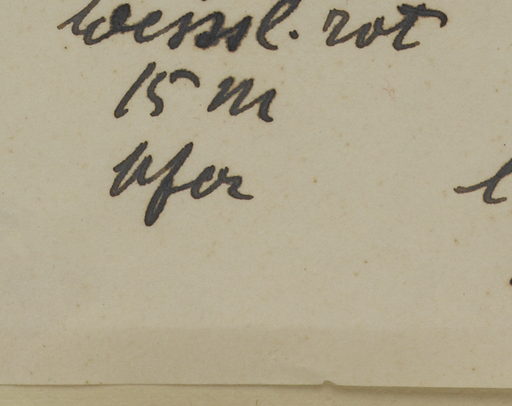 weissl. rot
15 m
Ufer